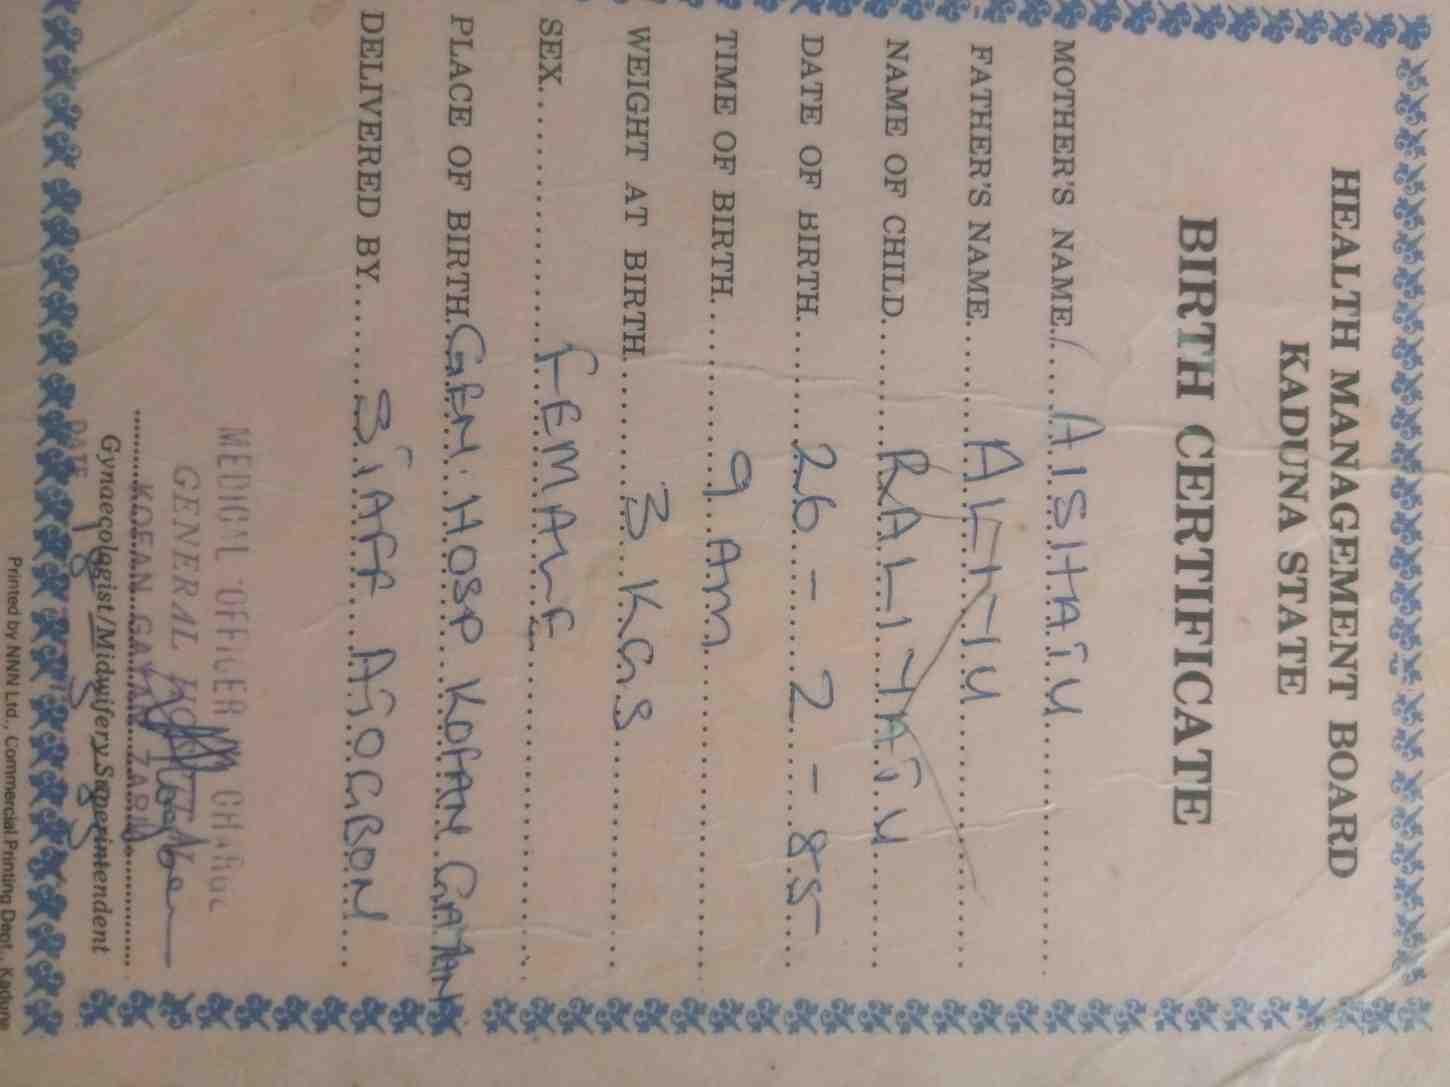 HEALTH MANAGEMENT BOARD
KADUNA STATE
BIRTH CERTIFICATE
MOTHER'S NAME........AISHATU..................
FATHER'S NAME............ALIYU..................
NAME OF CHILD............RALIYATU............
DATE OF BIRTH............26 - 2 - 85....
TIME OF BIRTH............9 Am..................
WEIGHT AT BIRTH............3 KGS..................
SEX..................FEMALE..................
PLACE OF BIRTH GEN. HOSP KOFAN GAYAN
DELIVERED BY......STAFF AJOGBON....
MEDICAL OFFICER CHARGE
GENERAL
KOFAN GAYAN ZARIA
Gynaecologist/Midwifery Superintendent
DATE
Printed by NNN Ltd., Commercial Printing Dept., Kaduna